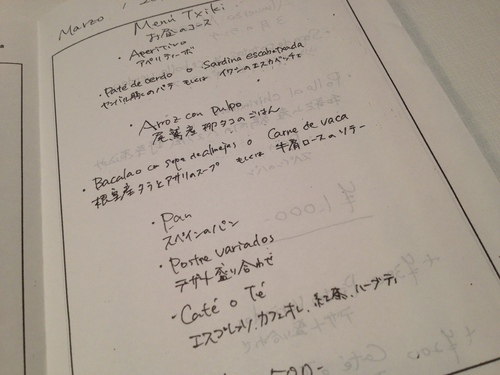 Marzo /
Menú Txiki
お昼のコース
・Aperitivo
アペリティーボ
・Paté de cerdo o Sardina escabetxada
豚のパテ もしくは イワシのエスカベッチェ
・Arroz con pulpo
尾鷲産 タコのごはん
・Bacalao con sopa de almejas o Carne de vaca
根室産タラとアサリのスープ もしくは 牛肩ロースのソテー
・Pan
スペインのパン
・Postre variados
デザート盛り合わせ
・Café o Té
エスプレッソ、カフェオレ、紅茶、ハーブティ
¥1,000-